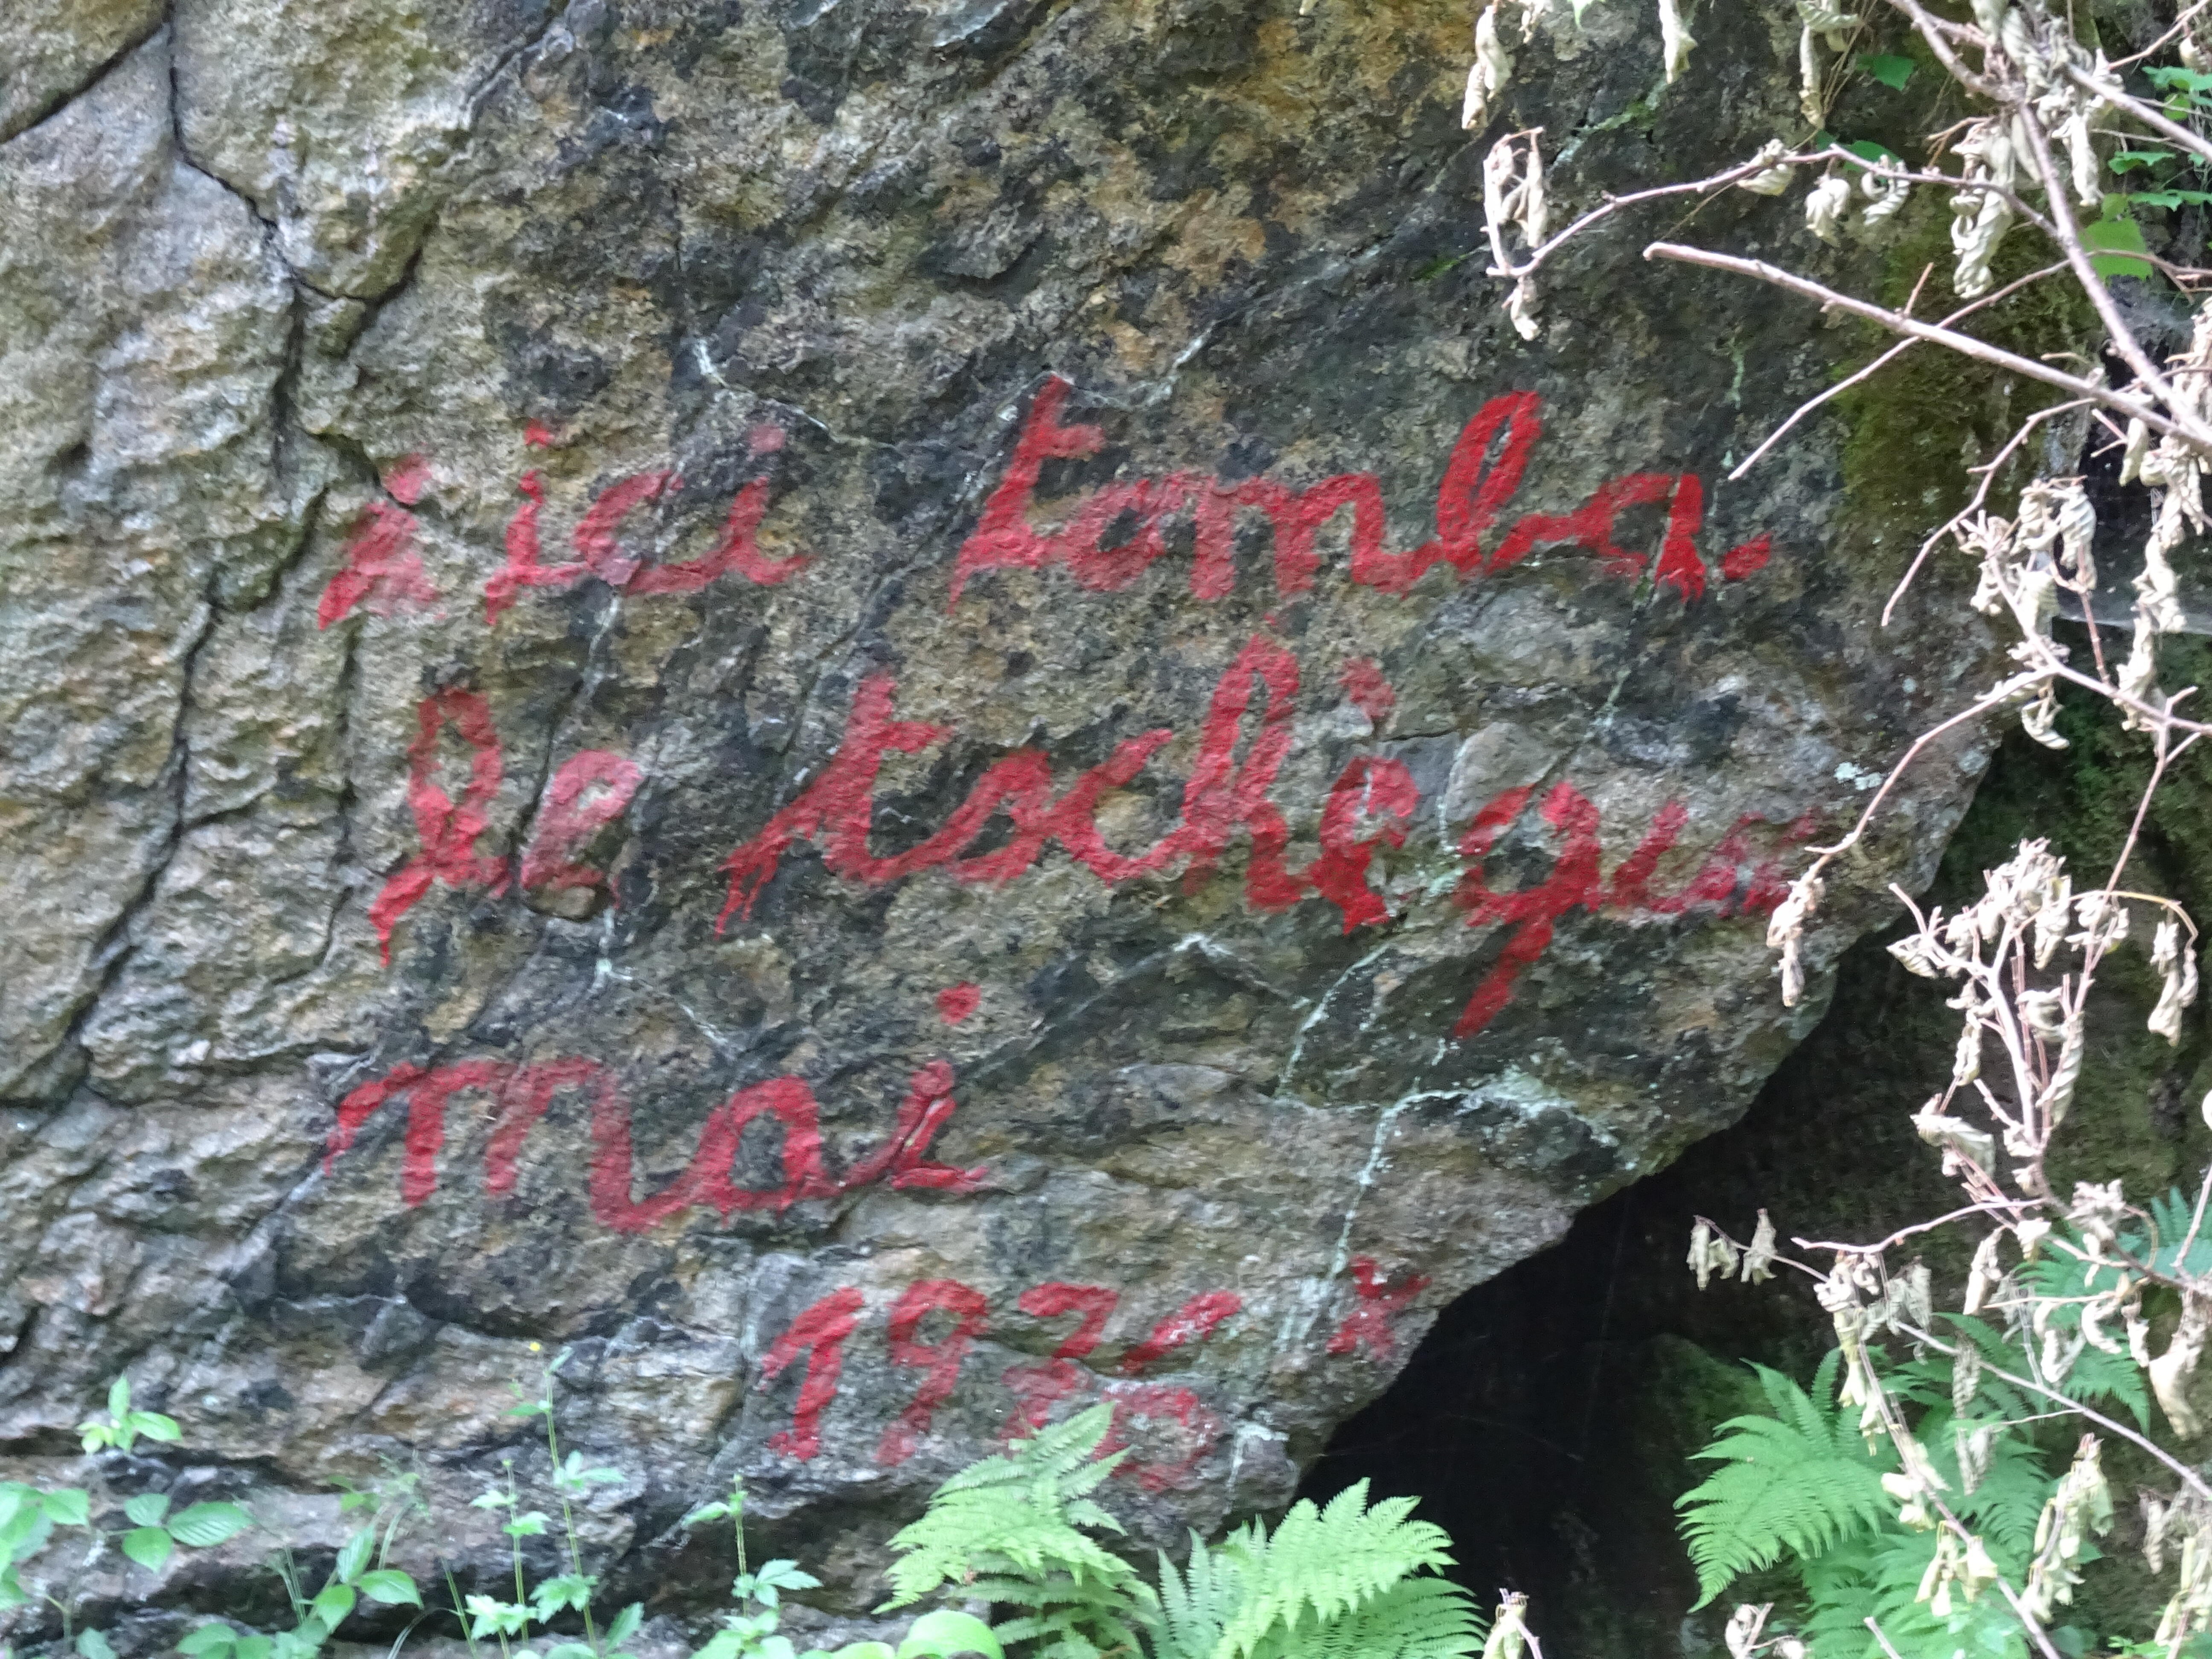 ici tomba.
le tochequ
mai
1970